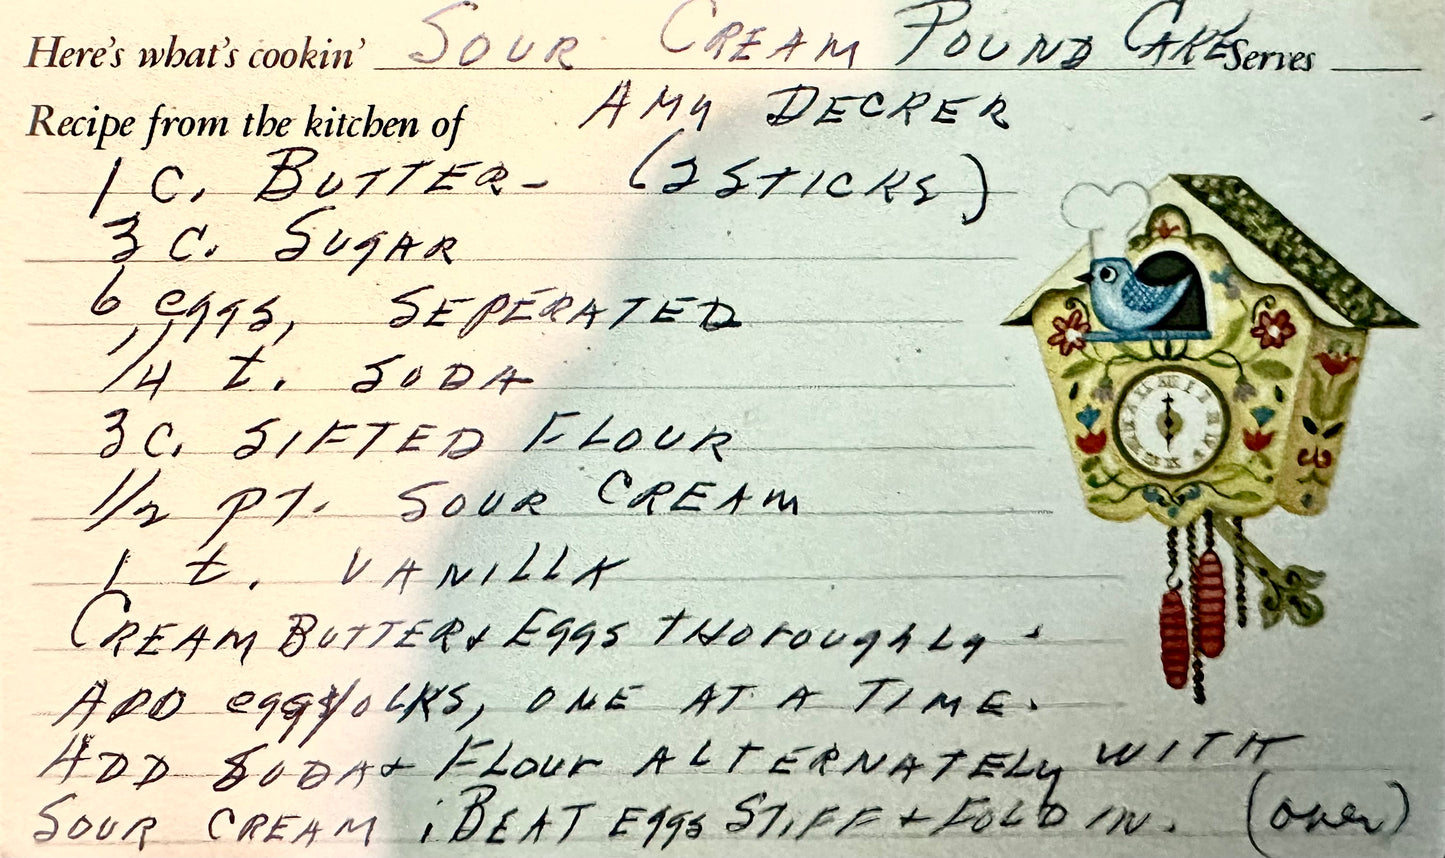 Here's what's cookin' SOUR CREAM POUND CAKE Serves
Recipe from the kitchen of AMY DECKER
1 C. BUTTER - (2 STICKS)
3 C. SUGAR
6 eggs, SEPERATED
1/4 t. SODA
3 C. SIFTED FLOUR
1/2 PT. SOUR CREAM
1 t. VANILLA
CREAM BUTTER & EggS THOROUGHLY.
ADD eggyOLKS, ONE AT A TIME.
ADD SODA & FLOUR ALTERNATELY WITH
SOUR CREAM; BEAT EggS STIFF & FOLD IN. (over)